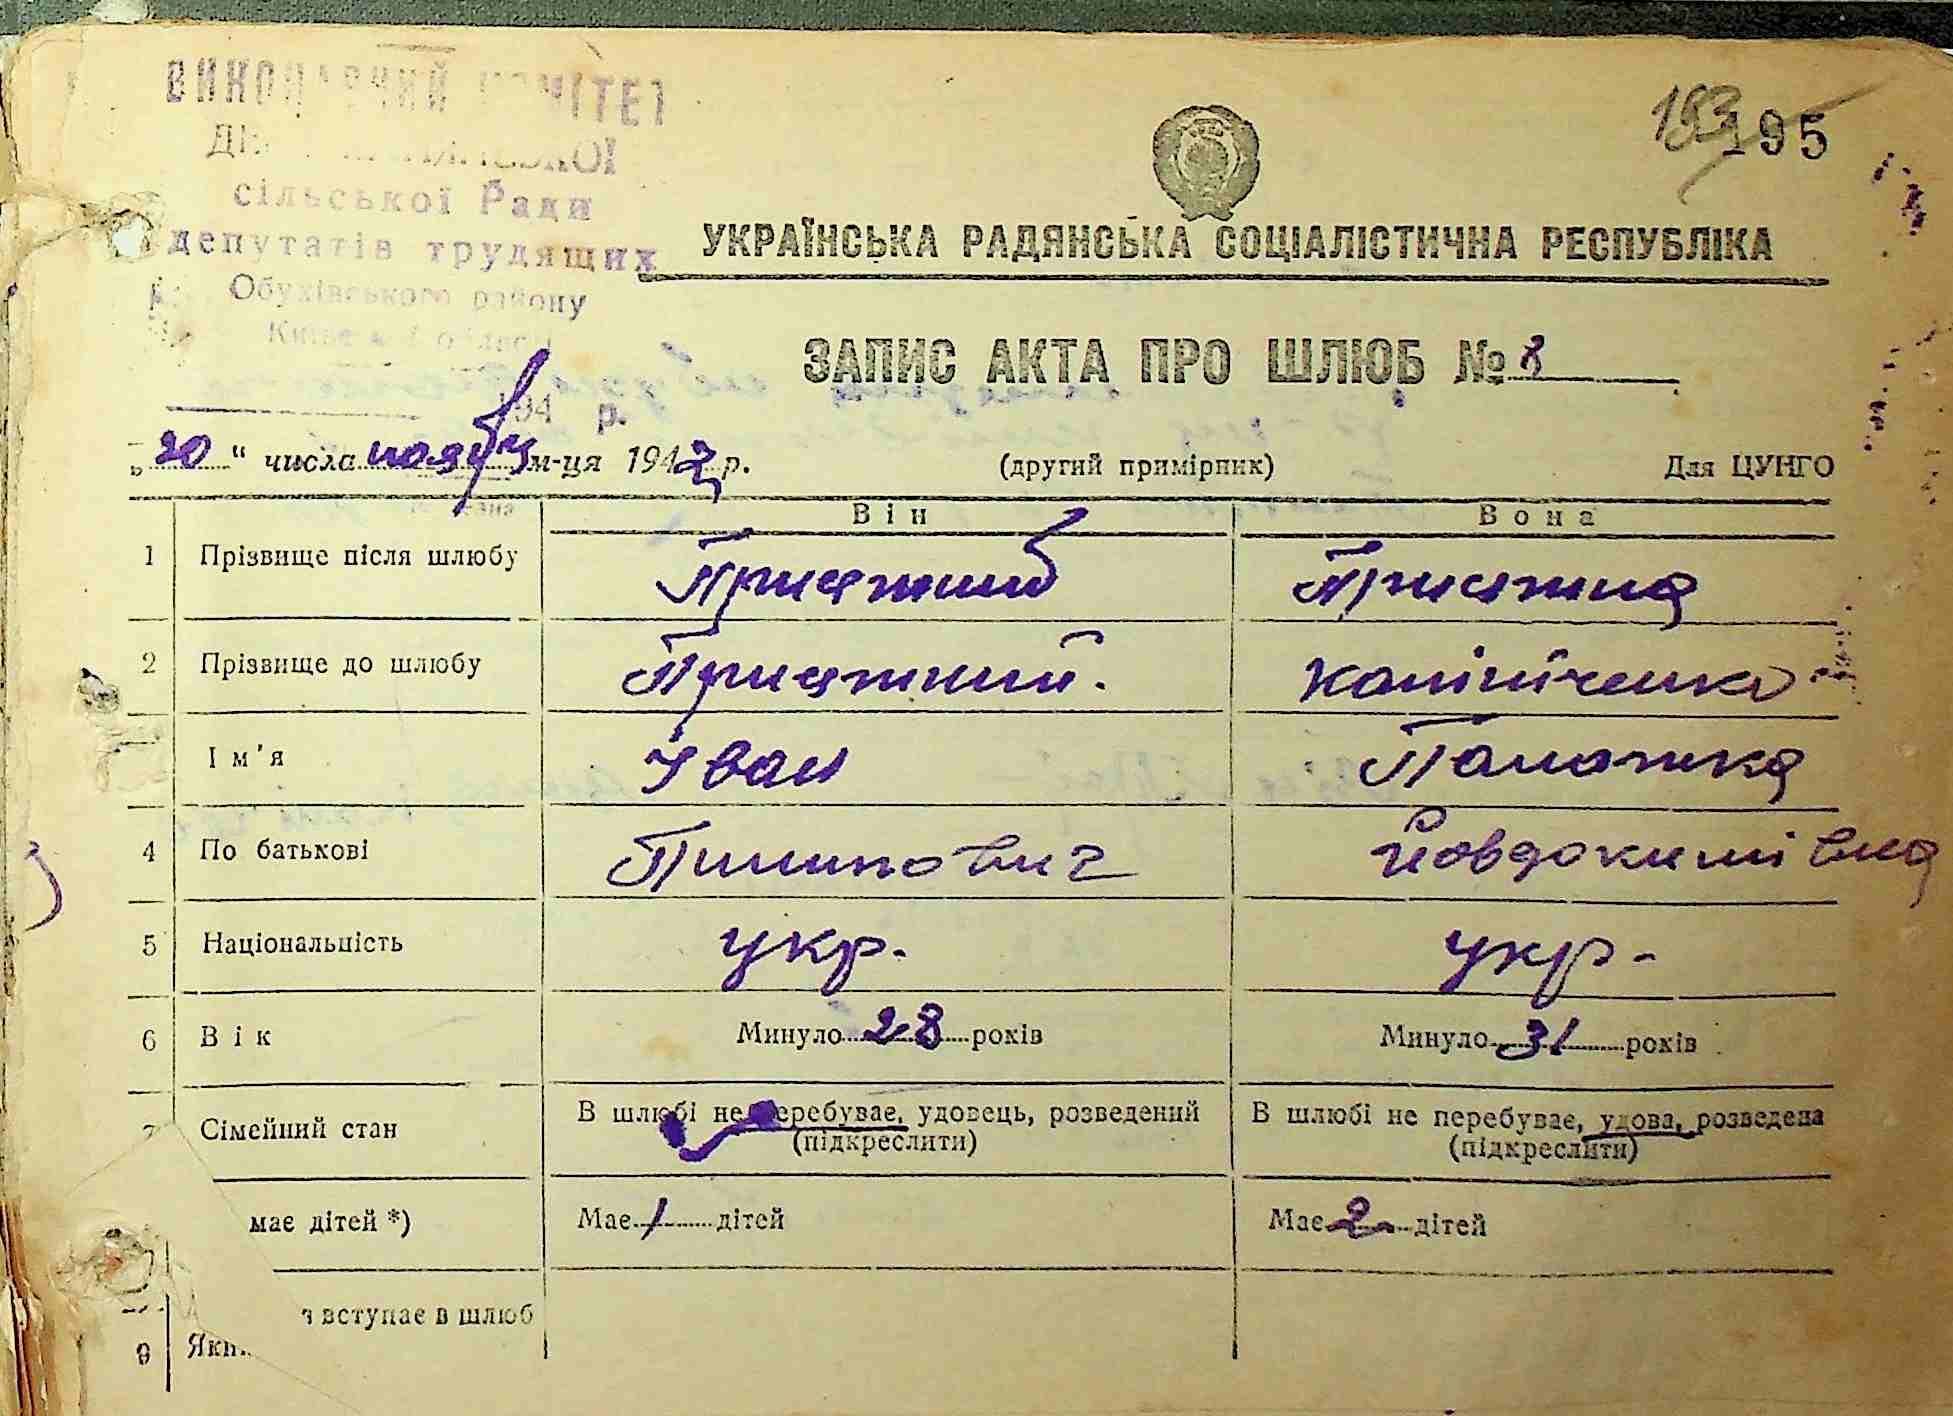 ВИКОНАВЧИЙ КОМІТЕТ
сільської Ради
депутатів трудящих
Обухівського району
Київської області
194 р.
193
195
УКРАЇНСЬКА РАДЯНСЬКА СОЦІАЛІСТИЧНА РЕСПУБЛІКА
ЗАПИС АКТА ПРО ШЛЮБ № 8
„20“ числа ноября м-ця 1942 р. (другий примірник) Для ЦУНГО
Він Вона
1 Прізвище після шлюбу Приятний Приятна
2 Прізвище до шлюбу Приятний. Калініченко
Ім'я Іван Палажка
4 По батькові Пилипович Йовдокимівна
5 Національність укр. укр.
6 Вік Минуло 28 років Минуло 31 років
7 Сімейний стан В шлюбі не перебуває, удовець, розведений (підкреслити) В шлюбі не перебуває, удова, розведена (підкреслити)
має дітей *) Має 1 дітей Має 2 дітей
вступає в шлюб
9